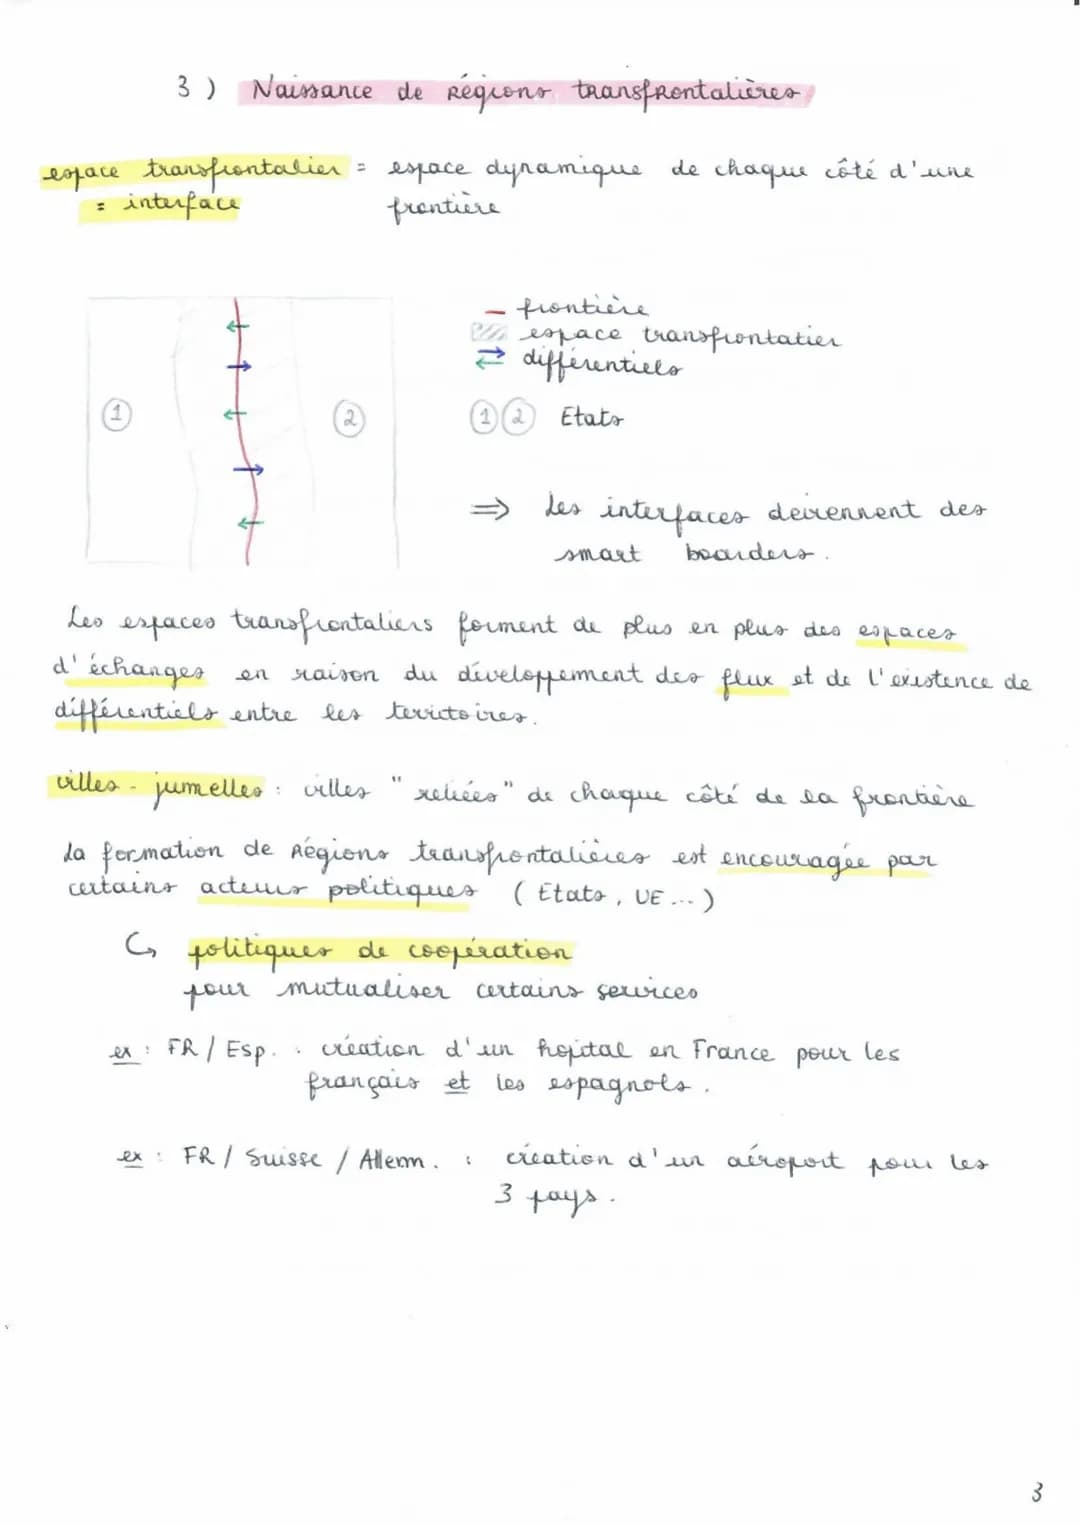 3) Naissance de régions transfrontalières
espace transfrontalier = espace dynamique de chaque côté d'une
= interface frontière
frontière
espace transfrontalier
différentiels
1 2 Etats
1
2
⇒ Les interfaces deviennent des
smart boarders.
Les espaces transfrontaliers forment de plus en plus des espaces
d'échanges en raison du développement des flux et de l'existence de
différentiels entre les territoires.
villes-jumelles : villes "reliées" de chaque côté de la frontière
La formation de régions transfrontalières est encouragée par
certains acteurs politiques (Etats, UE...)
↪ politiques de coopération
pour mutualiser certains services
ex : FR / Esp. : création d'un hopital en France pour les
français et les espagnols.
ex : FR / Suisse / Allem. : création d'un aéroport pour les
3 pays.
3